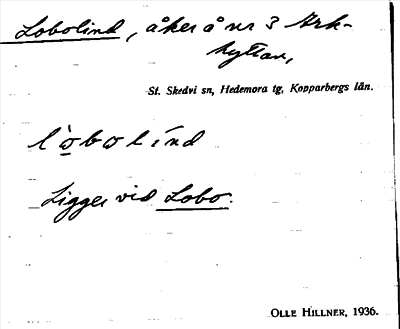 Lobolind, åker å nr 3 Ark-
hyttan,
St. Skedvi sn, Hedemora tg, Kopparbergs län.
lòbolínd
Ligger vid Lobo.
OLLE HILLNER, 1936.